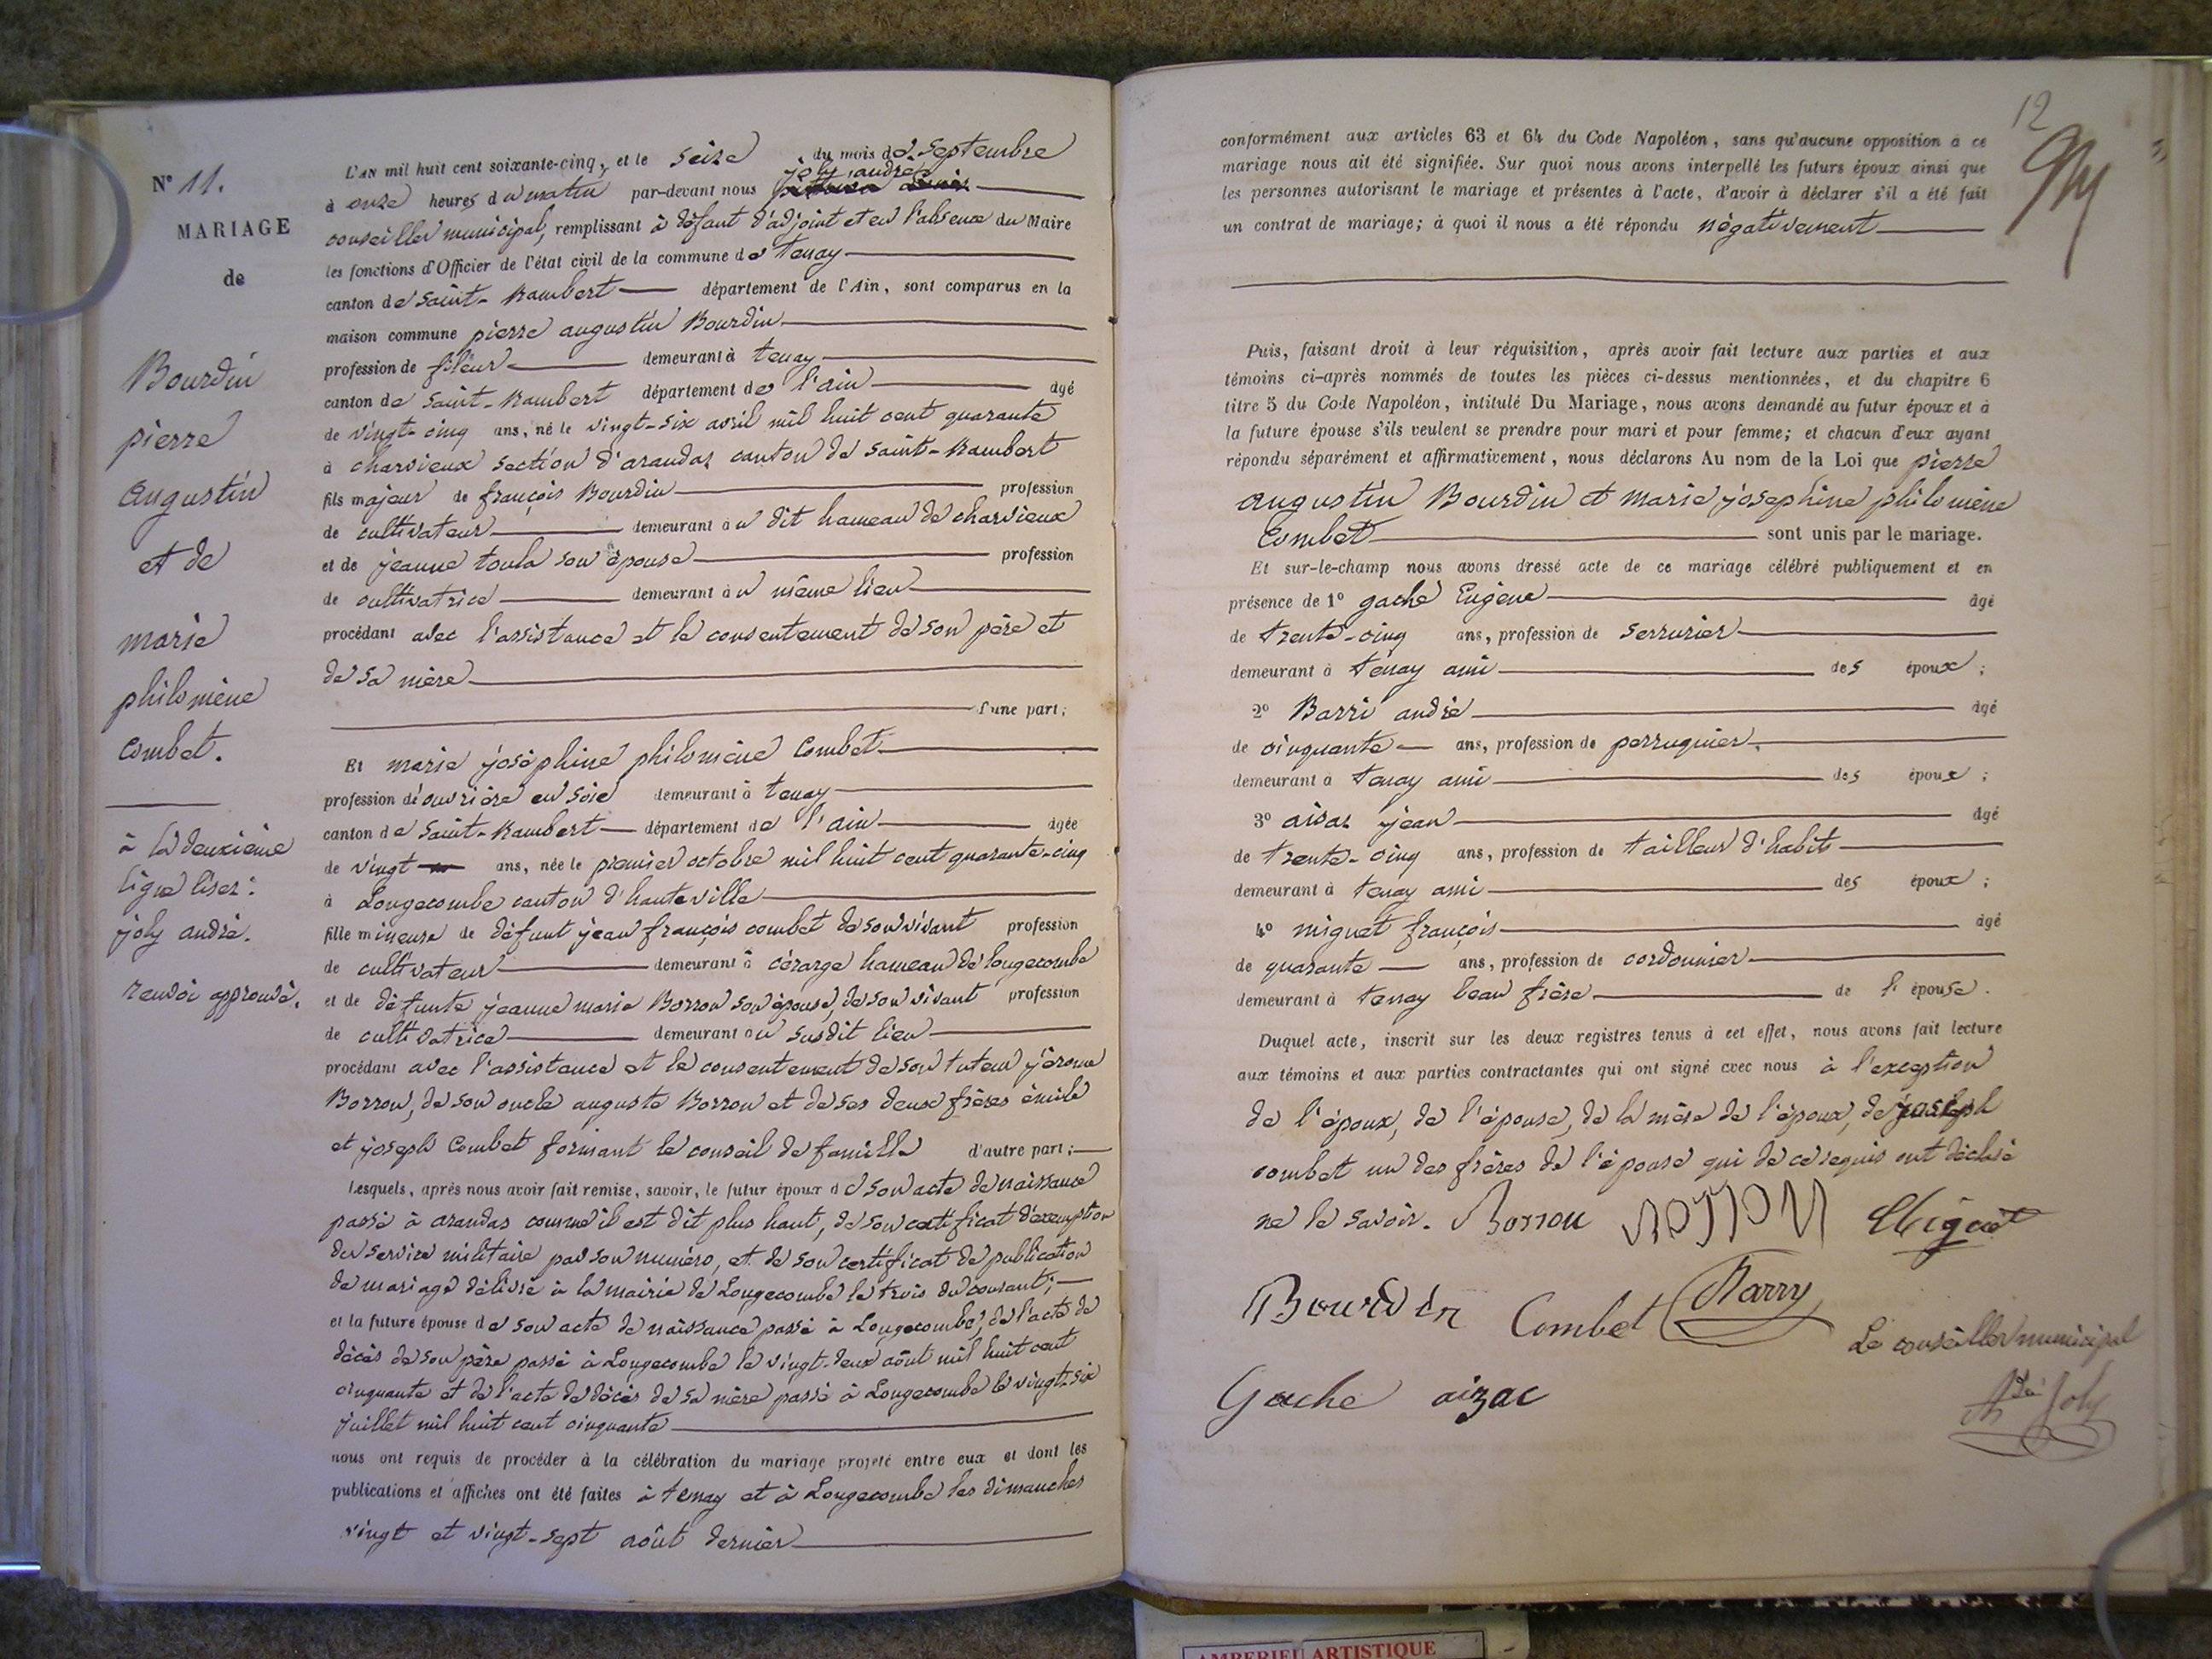 N° 11.
MARIAGE
de
Bourdin
pierre
augustin
et de
marie
philomène
Combet.
à la deuxième
ligne lisez :
joly andré.
renvoi approuvé.
L'AN mil huit cent soixante-cinq, et le Seize du mois de Septembre
joly andré
à onze heures du matin par-devant nous
conseiller municipal, remplissant à défaut d'adjoint et en l'absence du Maire
les fonctions d'Officier de l'état civil de la commune de tenay
canton de Saint-Rambert département de l'Ain, sont comparus en la
maison commune pierre augustin Bourdin
profession de fileur demeurant à tenay
canton de Saint-Rambert département de l'ain âgé
de vingt-cinq ans, né le vingt-six avril mil huit cent quarante
à charvieux section d'arandas canton de Saint-Rambert
fils majeur de françois Bourdin profession
de cultivateur demeurant au dit hameau de charvieux
et de jeanne toula son épouse profession
de cultivatrice demeurant au même lieu
procédant avec l'assistance et le consentement de son père et
de sa mère
d'une part;
Et marie joséphine philomène Combet
profession d'ouvrière en soie demeurant à tenay
canton de Saint-Rambert département de l'ain âgée
de vingt ans, née le premier octobre mil huit cent quarante-cinq
à Longecombe canton d'hauteville
fille mineure de défunt jean françois combet de son vivant profession
de cultivateur demeurant à cérarge hameau de longecombe
et de défunte jeanne marie Borron son épouse, de son vivant profession
de cultivatrice demeurant au susdit lieu
procédant avec l'assistance et le consentement de son tuteur jérome
Borron, de son oncle auguste Borron et de ses deux frères émile
et joseph Combet formant le conseil de famille d'autre part;
Lesquels, après nous avoir fait remise, savoir, le futur époux de son acte de naissance
passé à arandas comme il est dit plus haut, de son certificat d'exemption
du service militaire par son numéro, et de son certificat de publication
de mariage délivré à la mairie de Longecombe le trois du courant;
et la future épouse de son acte de naissance passé à Longecombe, de l'acte de
décès de son père passé à Longecombe le vingt-deux août mil huit cent
cinquante et de l'acte de décès de sa mère passé à Longecombe le vingt-six
juillet mil huit cent cinquante
nous ont requis de procéder à la célébration du mariage projeté entre eux et dont les
publications et affiches ont été faites à tenay et à Longecombe les dimanches
vingt et vingt-sept août dernier
12
conformément aux articles 63 et 64 du Code Napoléon, sans qu'aucune opposition à ce
mariage nous ait été signifiée. Sur quoi nous avons interpellé les futurs époux ainsi que
les personnes autorisant le mariage et présentes à l'acte, d'avoir à déclarer s'il a été fait
un contrat de mariage; à quoi il nous a été répondu négativement
Puis, faisant droit à leur réquisition, après avoir fait lecture aux parties et aux
témoins ci-après nommés de toutes les pièces ci-dessus mentionnées, et du chapitre 6
titre 5 du Code Napoléon, intitulé Du Mariage, nous avons demandé au futur époux et à
la future épouse s'ils veulent se prendre pour mari et pour femme; et chacun d'eux ayant
répondu séparément et affirmativement, nous déclarons Au nom de la Loi que pierre
augustin Bourdin et marie joséphine philomène
Combet sont unis par le mariage.
Et sur-le-champ nous avons dressé acte de ce mariage célébré publiquement et en
présence de 1° gache Eugène âgé
de trente-cinq ans, profession de serrurier
demeurant à tenay ami des époux;
2° Barri andré âgé
de cinquante ans, profession de perruquier
demeurant à tenay ami des époux;
3° aisac jean âgé
de trente-cinq ans, profession de tailleur d'habit
demeurant à tenay ami des époux;
4° miguet françois âgé
de quarante ans, profession de cordonnier
demeurant à tenay beau frère de l'épouse.
Duquel acte, inscrit sur les deux registres tenus à cet effet, nous avons fait lecture
aux témoins et aux parties contractantes qui ont signé avec nous à l'exception
de l'époux, de l'épouse, de la mère de l'époux, de joseph
combet un des frères de l'épouse qui de ce requis ont déclaré
ne le savoir. Borron Miguet
Bourdin Combet Barry
Le conseiller municipal
Gache aizac
Joly
AMBERIEU ARTISTIQUE